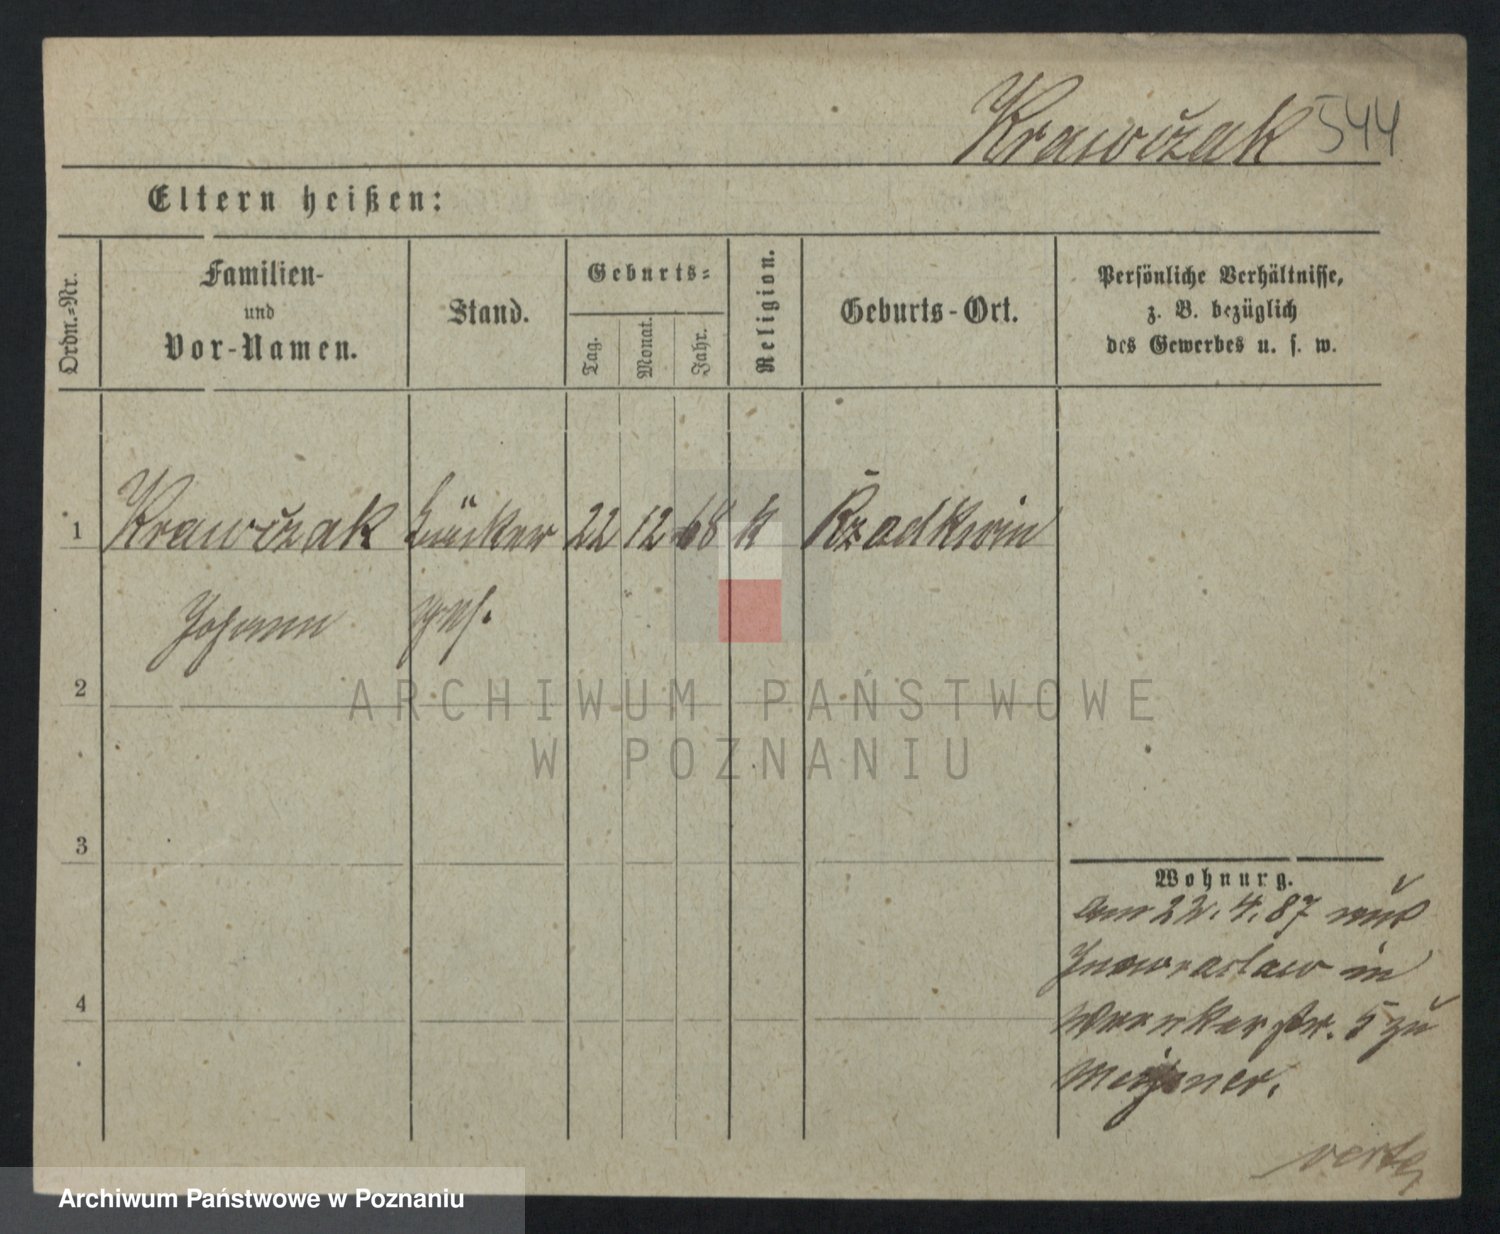 Krawczak 544
Eltern heißen:
Ordn.-Nr.
Familien-
und
Vor-Namen.
Stand.
Geburts-
Tag.
Monat.
Jahr.
Religion.
Geburts-Ort.
Persönliche Verhältnisse,
z. B. bezüglich
des Gewerbes u. s. w.
1 Krawczak 22 12 68 k Rzadkwin
Johann
2
ARCHIWUM PAŃSTWOWE
W POZNANIU
3
Wohnung.
am 22.4.87 aus
Inowraclaw in
str. 5 zu
4
verte
Archiwum Państwowe w Poznaniu